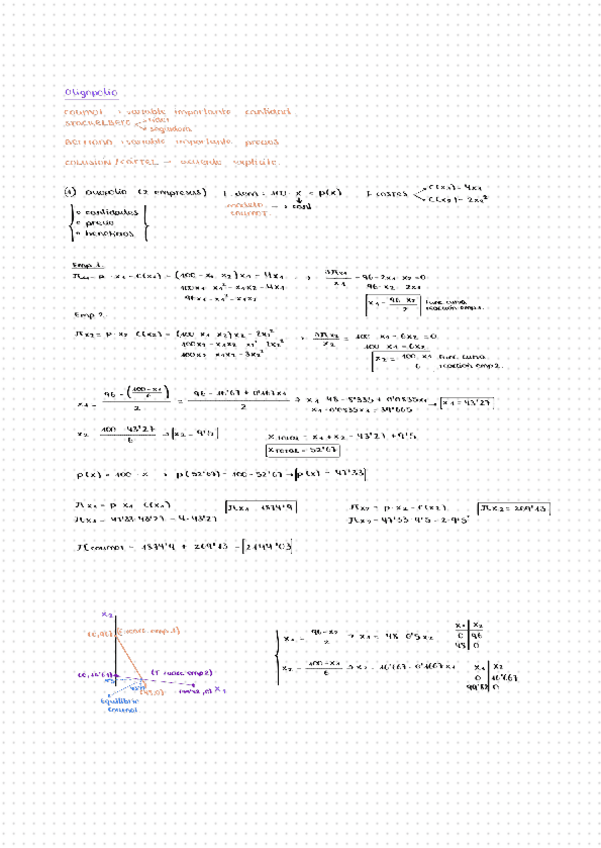 Oligopolio
COURNOT : variable importante cantidad
STACKELBERG líder
seguidora
BERTRAND : variable importante precios
COLUSIÓN / CARTEL → acuerdo explícito.
① Duopolio (2 empresas) F. dem: 100 - x = p(x) F. costes C(x1) = 4x1
C(x2) = 2x2²
modelo cournot. → cant
• cantidades
• precio
• beneficios
Emp 1.
πx1 = p · x1 - C(x1) = (100 - x1 - x2)x1 - 4x1 → = 96 - 2x1 - x2 = 0
100x1 - x1² - x1x2 - 4x1 96 - x2 = 2x1
96x1 - x1² - x1x2 x1 = 96 - x2 / 2 Func. curva reacción emp 1.
Emp 2.
πx2 = p · x2 - C(x2) = (100 - x1 - x2)x2 - 2x2² → = 100 - x1 - 6x2 = 0
100x2 - x1x2 - x2² - 2x2² 100 - x1 = 6x2
100x2 - x1x2 - 3x2² x2 = 100 - x1 / 6 Func. curva reacción emp 2.
x1 = 96 - (100 - x1 / 6) / 2 = 96 - 16'67 + 0'167x1 / 2 → x1 = 48 - 8'335 + 0'0835x1 → x1 = 43'27
x1 - 0'0835x1 = 39'665
x2 = 100 - 43'27 / 6 → x2 = 9'5 x TOTAL = x1 + x2 = 43'27 + 9'5
x TOTAL = 52'67
p(x) = 100 - x → p(52'67) = 100 - 52'67 → p(x) = 47'33
πx1 = p · x1 - C(x1) πx1 = 1874'9 πx2 = p · x2 - C(x2) πx2 = 269'13
πx1 = 47'33 · 43'27 - 4 · 43'27 πx2 = 47'33 · 9'5 - 2 · 9'5²
π cournot = 1874'9 + 269'13 = 2144'03
x2
(0,96) (F. reacc. emp.1)
(0,16'67) (F. reacc emp2)
(48,0) x1
Equilibrio cournot
x1 = 96 - x2 / 2 → x1 = 48 - 0'5x2
x1 x2
0 96
48 0
x2 = 100 - x1 / 6 → x2 = 16'667 - 0'1667x1
x1 x2
0 16'667